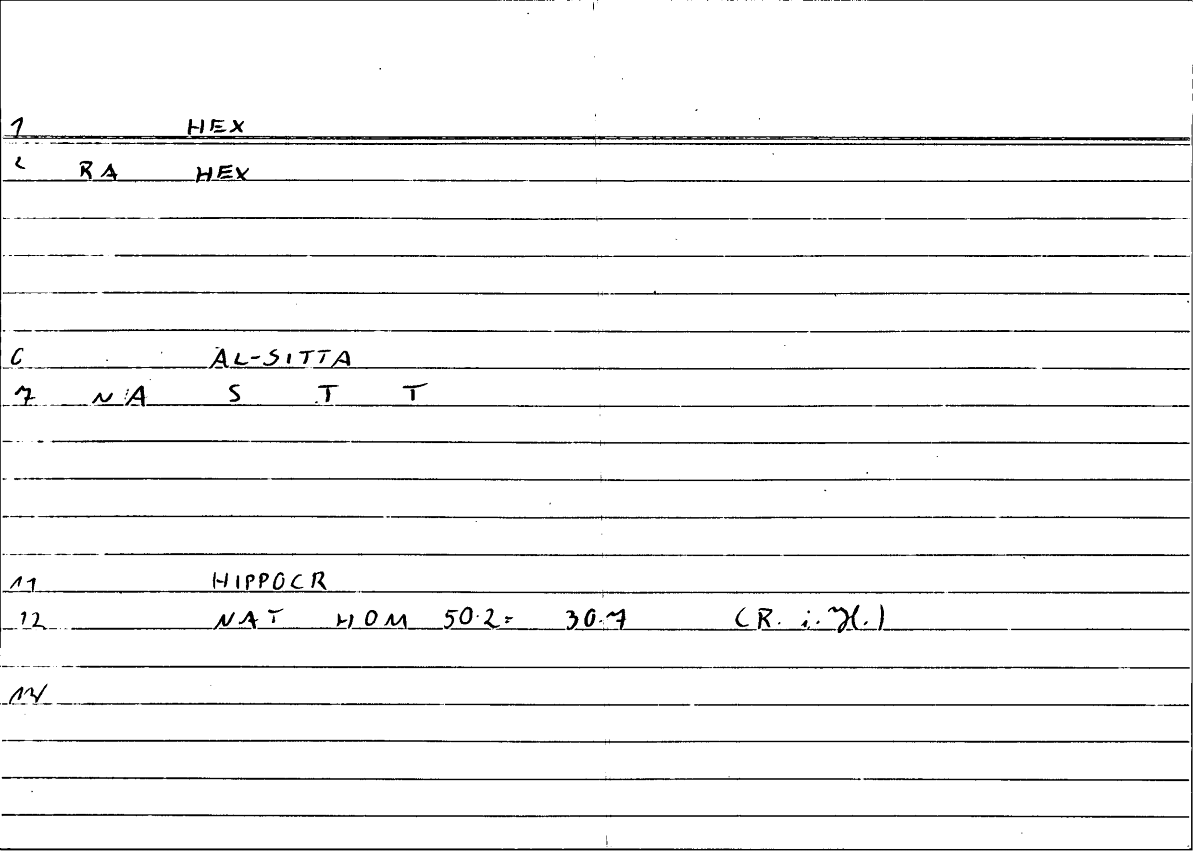 1 HEX
2 RA HEX
6 AL-SITTA
7 NA S T T
11 HIPPOCR
12 NAT HOM 50.2= 30.7 (R. i. H.)